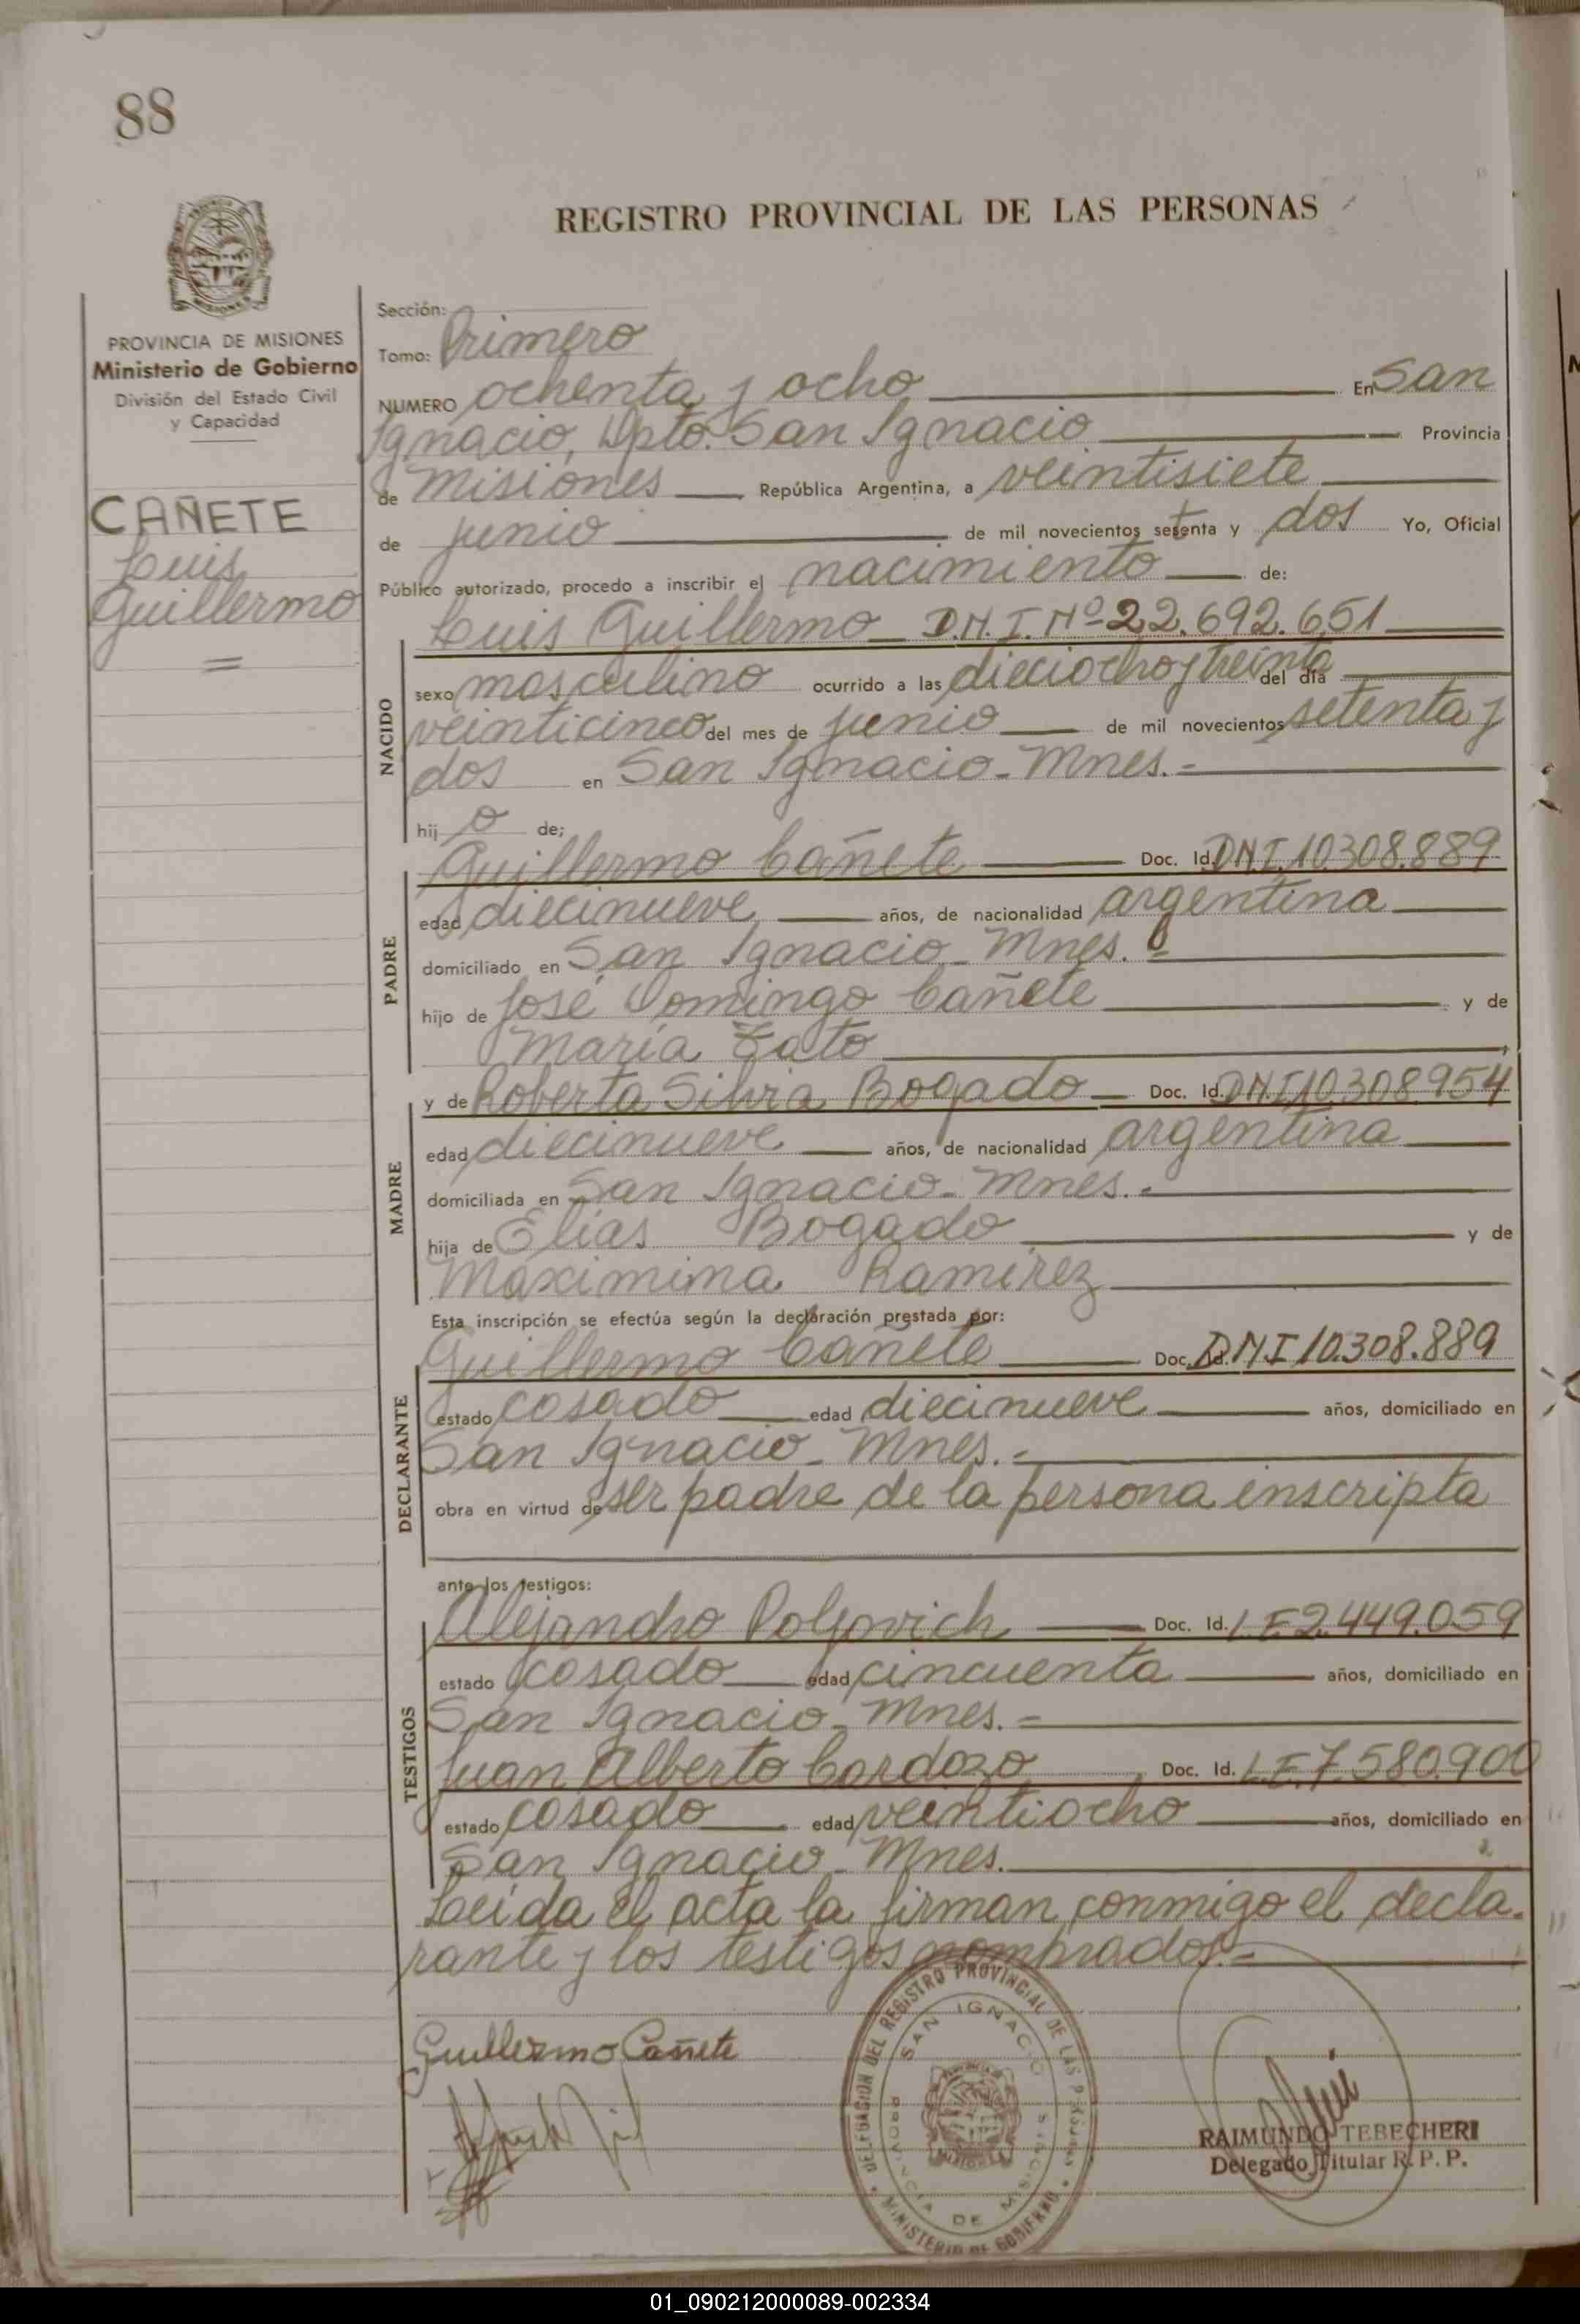 88
REGISTRO PROVINCIAL DE LAS PERSONAS
PROVINCIA DE MISIONES
Ministerio de Gobierno
División del Estado Civil
y Capacidad
CAÑETE
Luis
Guillermo
=
Sección:
Tomo: Primero
NUMERO ochenta y ocho En San
Ignacio, Dpto. San Ignacio Provincia
de Misiones República Argentina, a veintisiete
de junio de mil novecientos setenta y dos Yo, Oficial
Público autorizado, procedo a inscribir el nacimiento de:
Luis Guillermo D.N.I. Nº 22.692.651
NACIDO
sexo masculino ocurrido a las dieciocho y treinta del día
veinticinco del mes de junio de mil novecientos setenta y
dos en San Ignacio - Mnes.-
hij o de;
Guillermo Cañete Doc. Id. DNI.10.308.889
PADRE
edad diecinueve años, de nacionalidad argentina
domiciliado en San Ignacio - Mnes.-
hijo de José Domingo Cañete y de
María Zato
y de Roberta Silvia Bogado Doc. Id. DNI 10.308.954
MADRE
edad diecinueve años, de nacionalidad argentina
domiciliada en San Ignacio - Mnes.-
hija de Elías Bogado y de
Maximima Ramírez
Esta inscripción se efectúa según la declaración prestada por:
Guillermo Cañete Doc. Id. DNI 10.308.889
DECLARANTE
estado casado edad diecinueve años, domiciliado en
San Ignacio - Mnes.-
obra en virtud de ser padre de la persona inscripta
ante los testigos:
Alejandro Doc. Id. L.E 2.449.059
TESTIGOS
estado casado edad cincuenta años, domiciliado en
San Ignacio - Mnes.=
Juan Alberto Cardozo Doc. Id. L.E.7.580.900
estado casado edad veintiocho años, domiciliado en
San Ignacio - Mnes.
Leída el acta la firman conmigo el decla-
rante y los testigos nombrados.-
Guillermo Cañete
DELEGACION DEL REGISTRO PROVINCIAL DE LAS PERSONAS
SAN IGNACIO
PROVINCIA DE MISIONES
MINISTERIO DE GOBIERNO
RAIMUNDO TEBECHERI
Delegado Titular R. P. P.
01_090212000089-002334